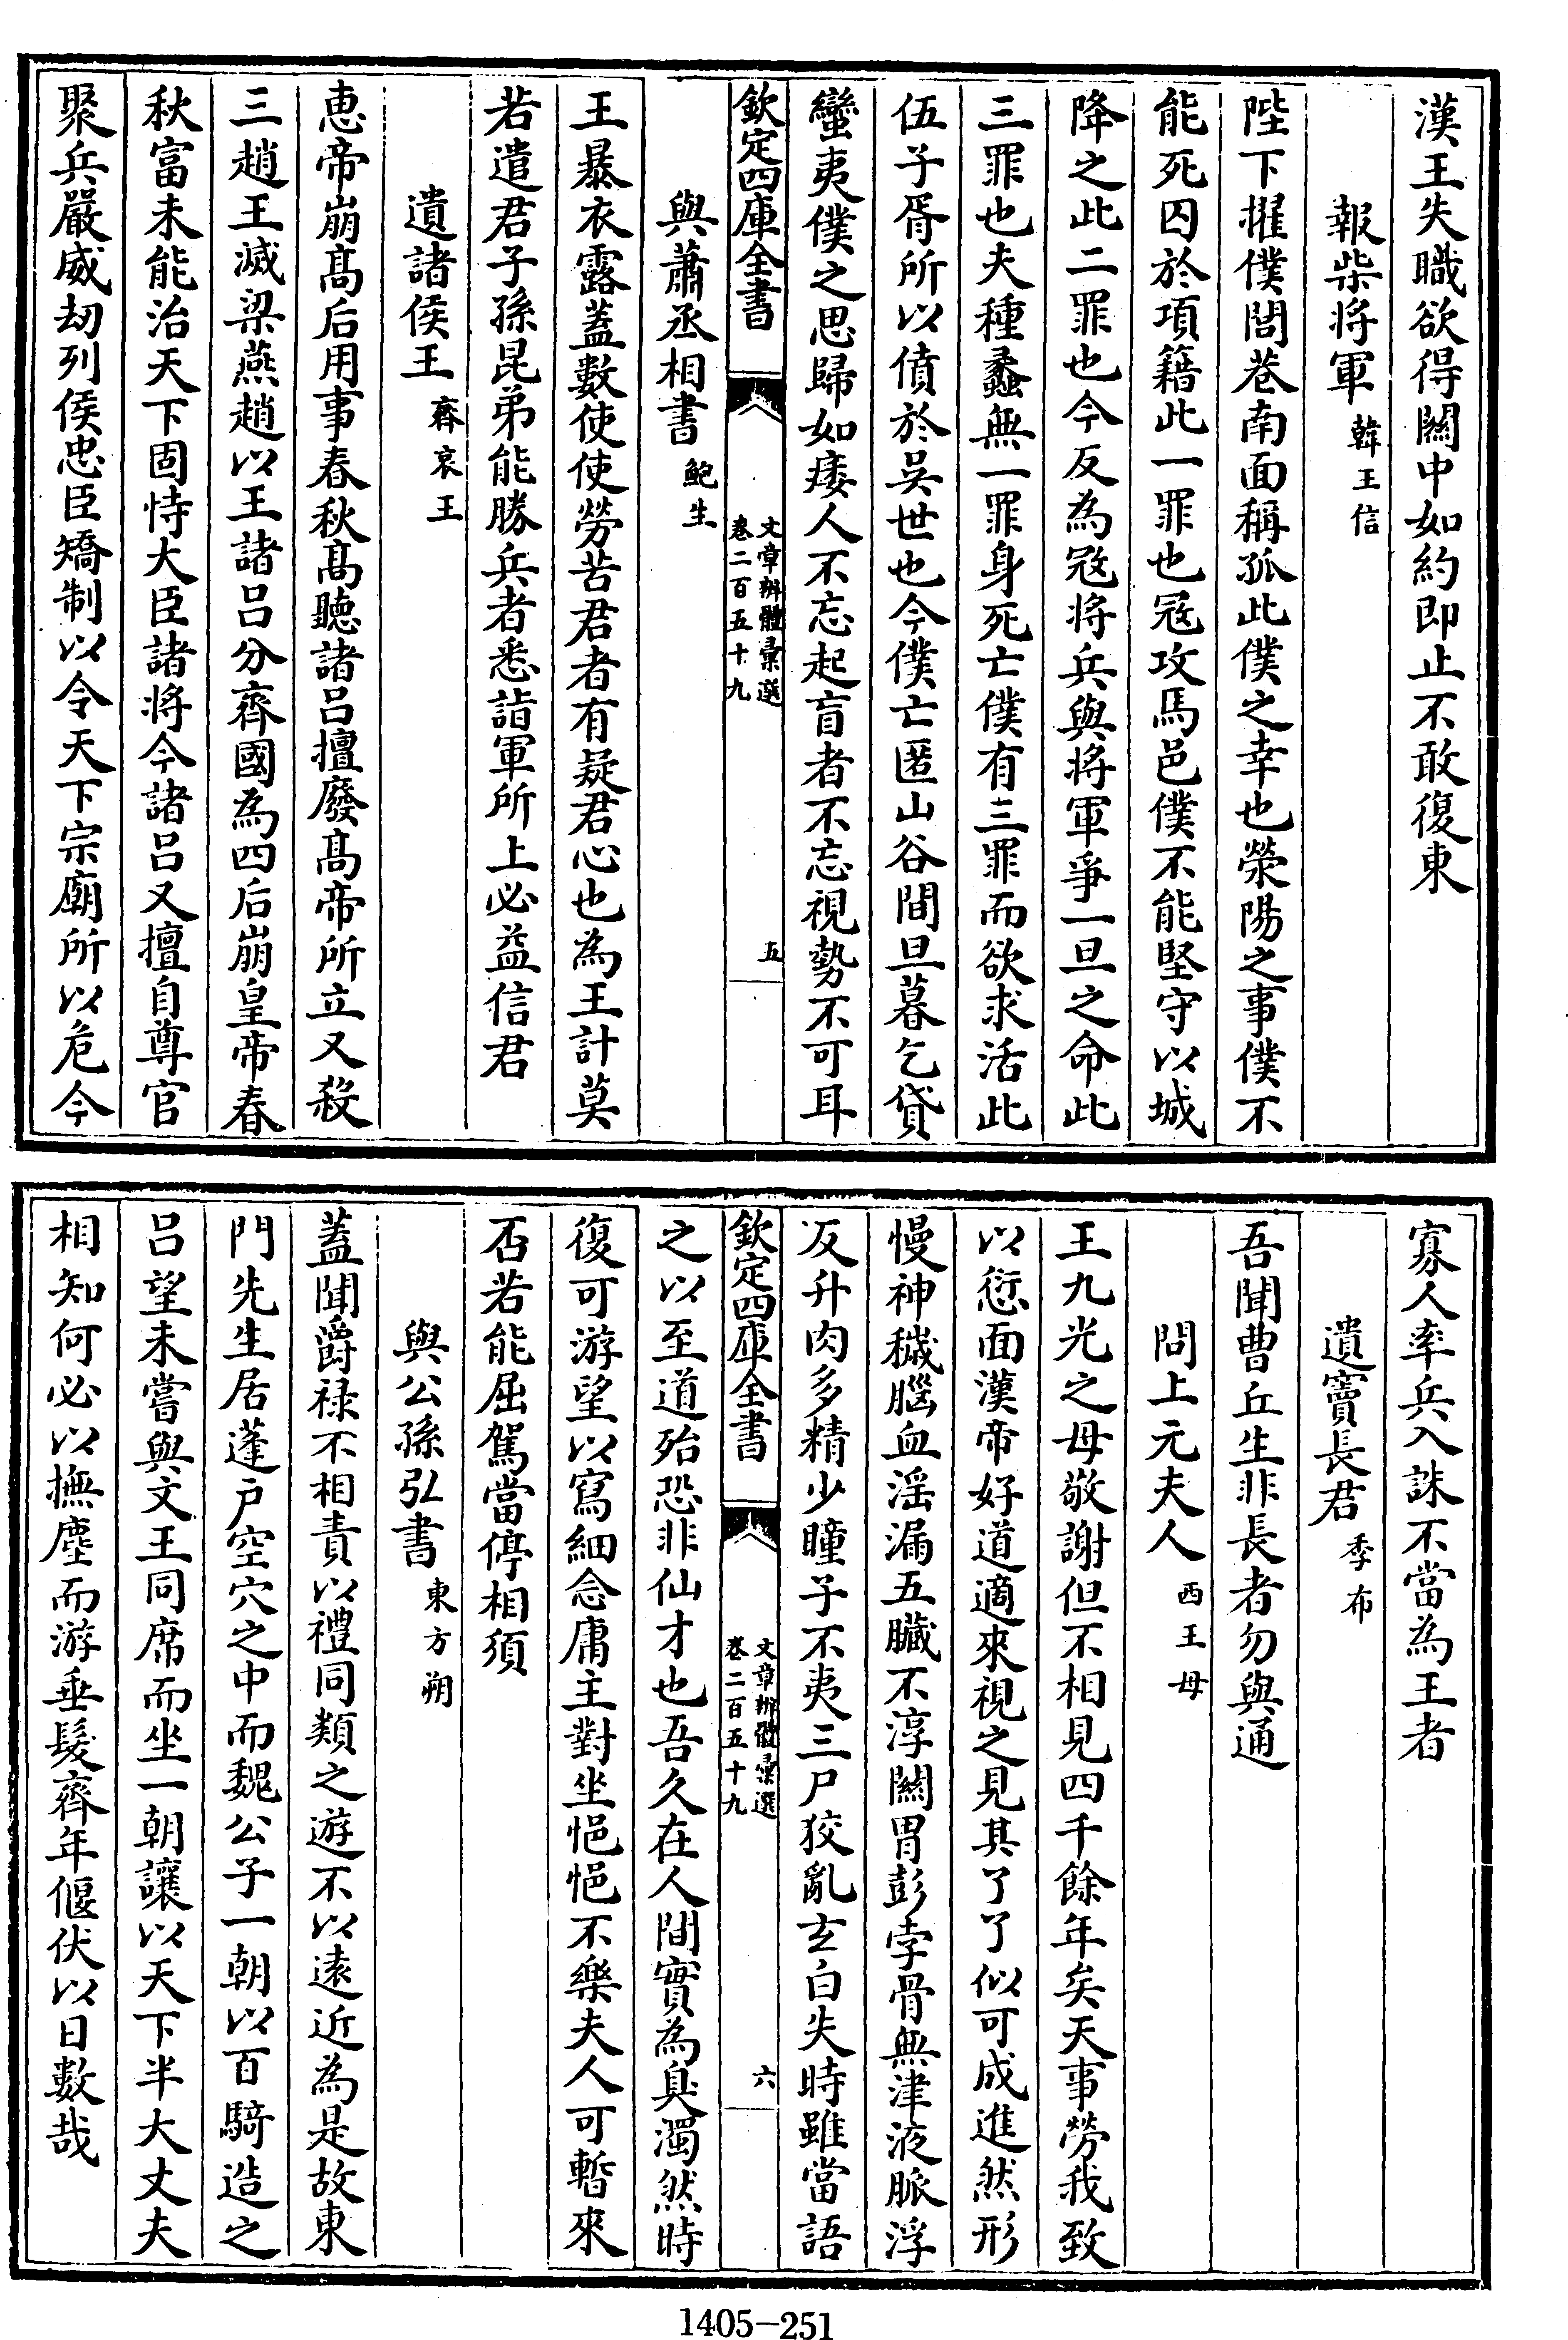 漢王失職欲得關中如約即止不敢復東
報柴將軍 韓王信
陛下擢僕閭巷南面稱孤此僕之幸也滎陽之事僕不
能死囚於項籍此一罪也冦攻馬邑僕不能堅守以城
降之此二罪也今反為冦將兵與將軍爭一旦之命此
三罪也夫種蠡無一罪身死亡僕有三罪而欲求活此
伍子胥所以僨於吳世也今僕亡匿山谷間旦暮乞貸
蠻夷僕之思歸如痿人不忘起盲者不忘視勢不可耳
欽定四庫全書
文章辨體彙選
卷二百五十九
五
與蕭丞相書 鮑生
王暴衣露蓋數使使勞苦君者有疑君心也為王計莫
若遣君子孫昆弟能勝兵者悉詣軍所上必益信君
遺諸侯王 齊哀王
惠帝崩髙后用事春秋髙聽諸呂擅廢髙帝所立又殺
三趙王滅梁燕趙以王諸呂分齊國為四后崩皇帝春
秋富未能治天下固恃大臣諸將今諸呂又擅自尊官
聚兵嚴威刼列侯忠臣矯制以令天下宗廟所以危今
寡人率兵入誅不當為王者
遺竇長君 季布
吾聞曹丘生非長者勿與通
問上元夫人 西王母
王九光之母敬謝但不相見四千餘年矣天事勞我致
以愆面漢帝好道適來視之見其了了似可成進然形
慢神穢腦血滛漏五臟不淳關胃彭孛骨無津液脈浮
反升肉多精少瞳子不夷三尸狡亂玄白失時雖當語
欽定四庫全書
文章辨體彙選
卷二百五十九
六
之以至道殆恐非仙才也吾久在人間實為臭濁然時
復可游望以寫細念庸主對坐悒悒不樂夫人可暫來
否若能屈駕當停相須
與公孫弘書 東方朔
蓋聞爵禄不相責以禮同類之遊不以逺近為是故東
門先生居蓬户空穴之中而魏公子一朝以百騎造之
呂望未嘗與文王同席而坐一朝讓以天下半大丈夫
相知何必以撫塵而游垂髮齊年偃伏以日數哉
1405-251